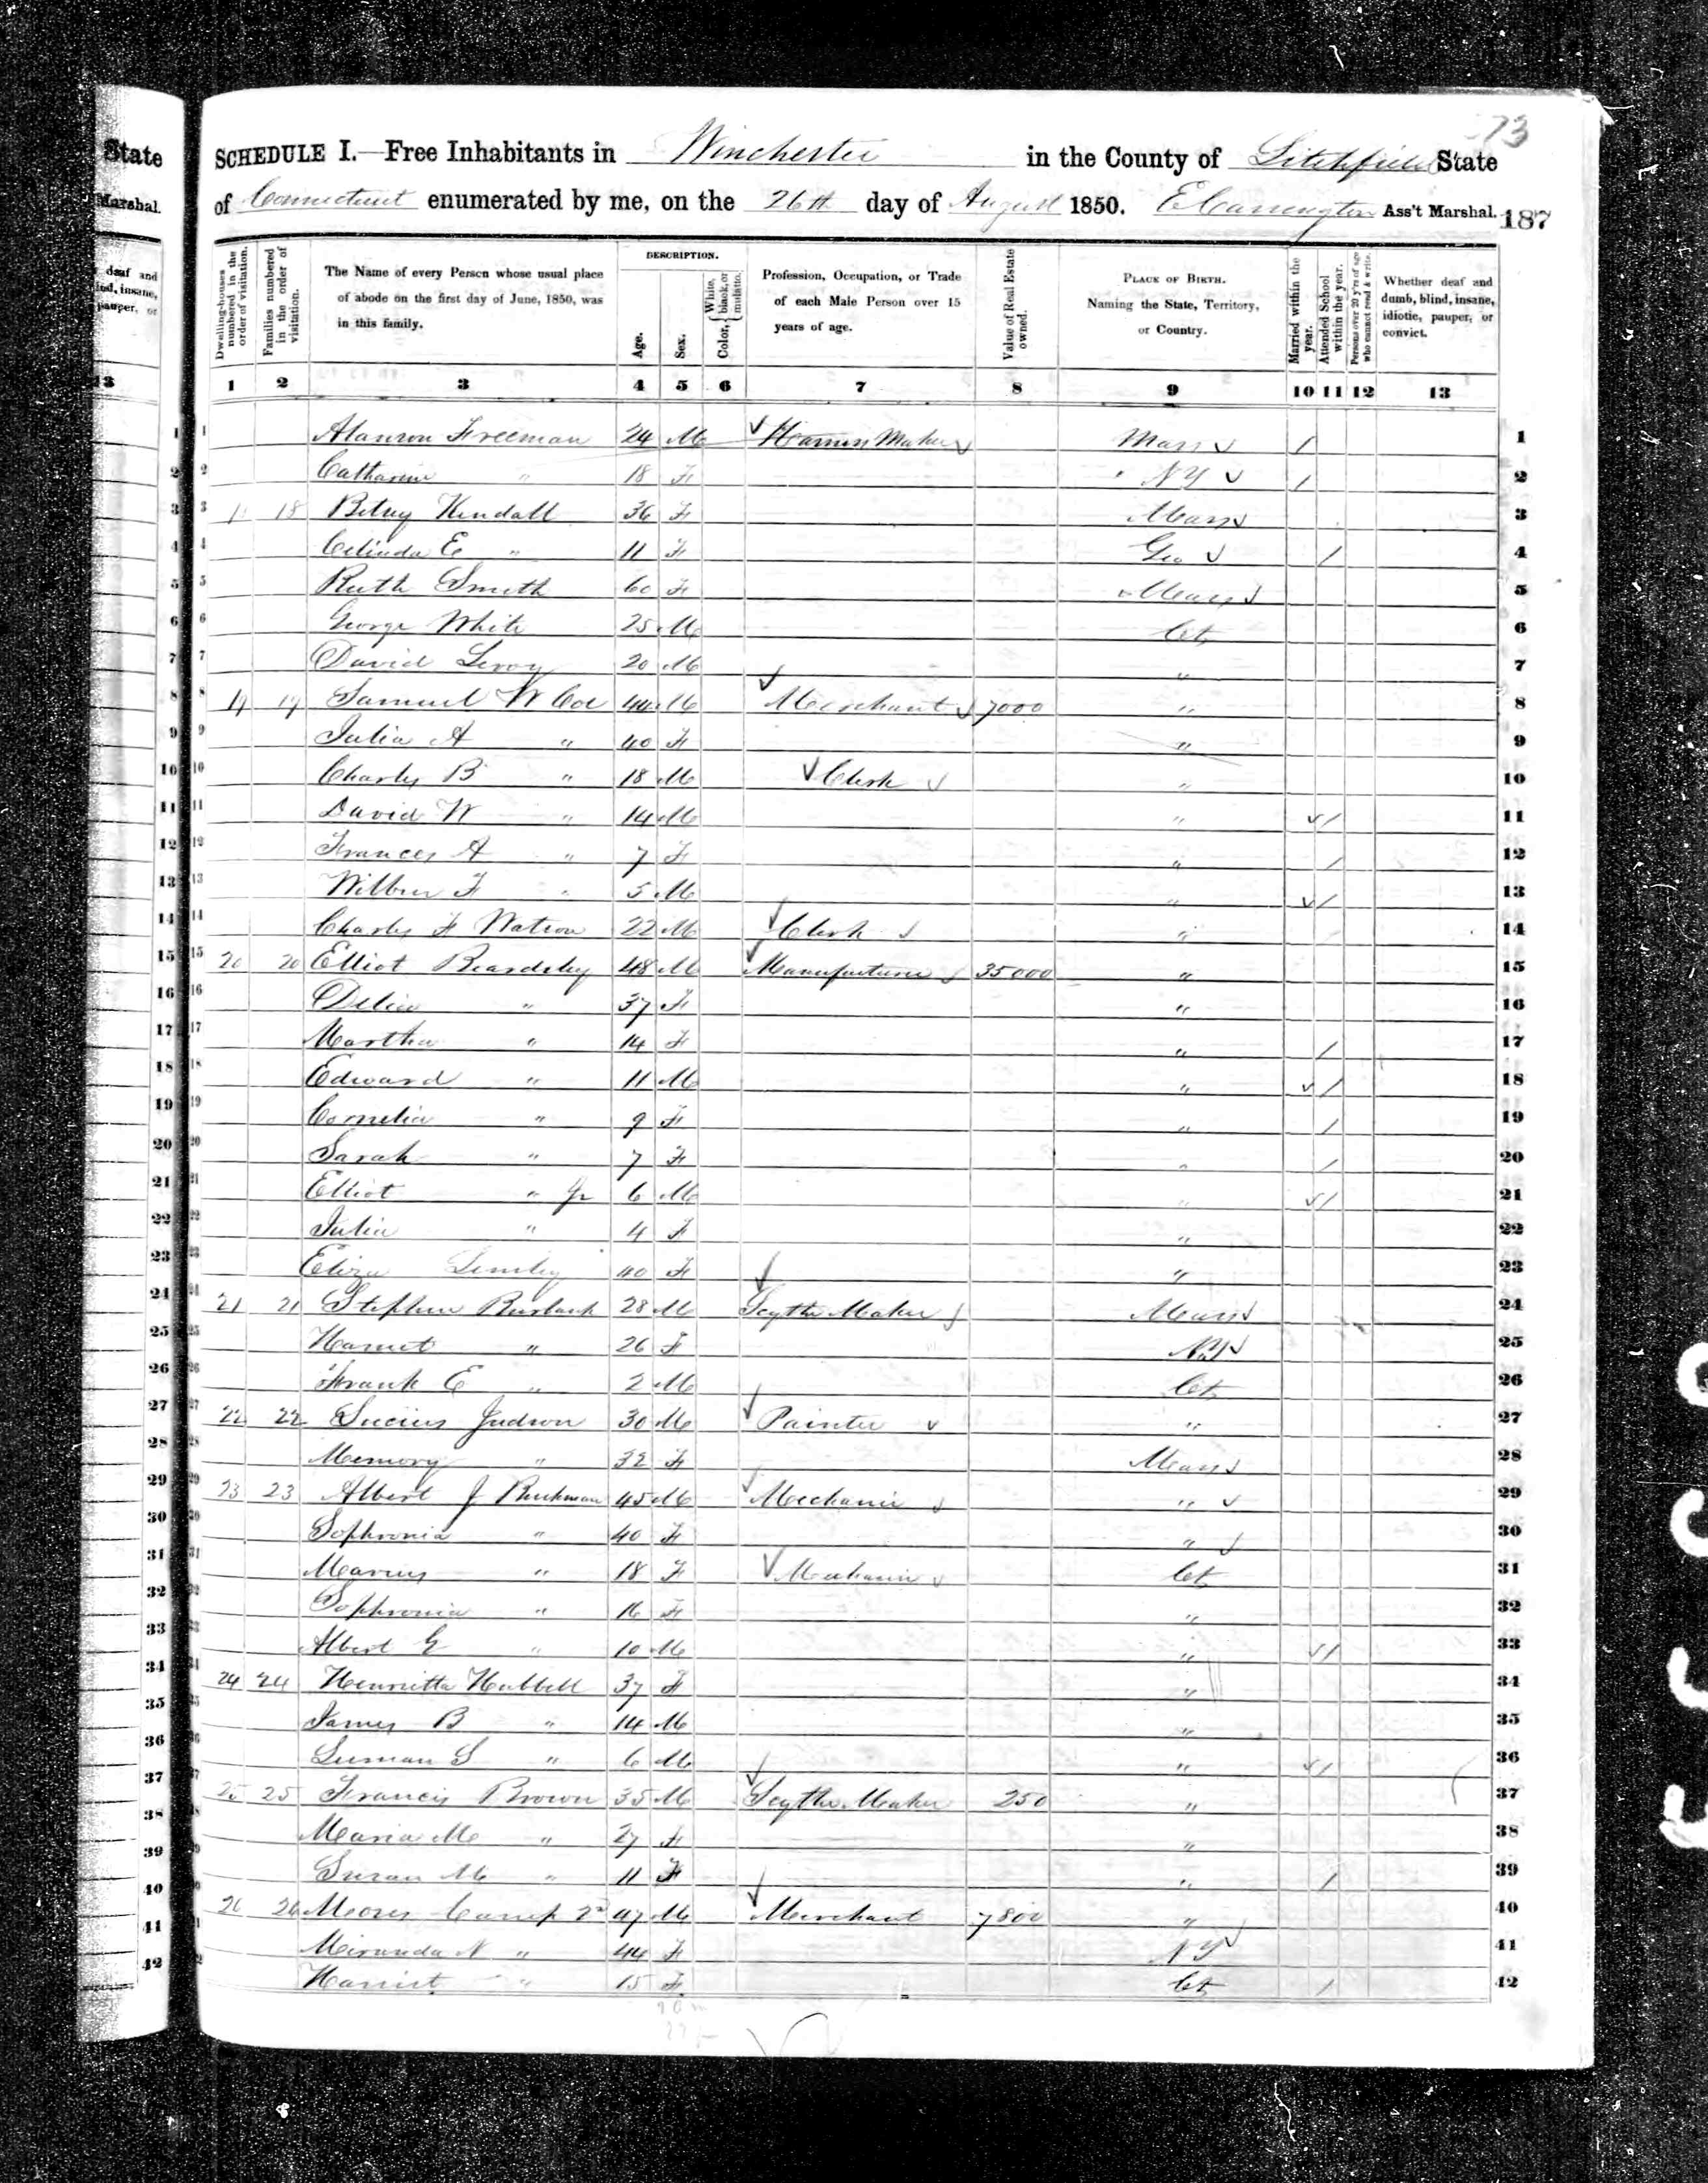 State
Marshal.
deaf and
ind, insane,
pauper, or
13
73
SCHEDULE I.—Free Inhabitants in Winchester in the County of Litchfield State
of Connecticut enumerated by me, on the 26th day of August 1850. E Carrington Ass't Marshal. 187
Dwelling-houses numbered in the order of visitation.
Families numbered in the order of visitation.
The Name of every Person whose usual place of abode on the first day of June, 1850, was in this family.
DESCRIPTION.
Age.
Sex.
Color, { White, black, or mulatto.
Profession, Occupation, or Trade of each Male Person over 15 years of age.
Value of Real Estate owned.
PLACE OF BIRTH. Naming the State, Territory, or Country.
Married within the year.
Attended School within the year.
Persons over 20 y'rs of age who cannot read & write.
Whether deaf and dumb, blind, insane, idiotic, pauper, or convict.
1 2 3 4 5 6 7 8 9 10 11 12 13
1 Alanson Freeman 24 M Harness Maker Mass / 1
2 Catharine " 18 F NY / 2
3 18 Betsey Kendall 36 F Mass 3
4 Celinda E " 11 F Geo / 4
5 Ruth Smith 60 F Mass 5
6 George White 25 M Ct 6
7 David Leroy 20 M " 7
8 19 19 Samuel W Coe 44 M Merchant 7000 " 8
9 Julia A " 40 F " 9
10 Charles B " 18 M Clerk " 10
11 David W " 14 M " / 11
12 Frances A " 7 F " / 12
13 Wilbur F " 5 M " / 13
14 Charles F Watson 22 M Clerk " 14
15 20 20 Elliot Beardsley 48 M Manufacturer 35000 " 15
16 Delia " 37 F " 16
17 Martha " 14 F " / 17
18 Edward " 11 M " / 18
19 Cornelia " 9 F " / 19
20 Sarah " 7 F " / 20
21 Elliot " Jr 6 M " / 21
22 Julia " 4 F " 22
23 Eliza 40 F " 23
24 21 21 Stephen Burbank 28 M Scythe Maker Mass 24
25 Harriet " 26 F NY 25
26 Frank E " 2 M Ct 26
27 22 22 Lucius Judson 30 M Painter " 27
28 Memory " 32 F Mass 28
29 23 23 Albert J 45 M Mechanic " 29
30 Sophronia " 40 F " 30
31 Marcus " 18 F Mechanic Ct 31
32 Sophronia " 16 F " 32
33 Albert G " 10 M " / 33
34 24 24 Henrietta Hubbell 37 F " 34
35 James B " 14 M " 35
36 Luman S " 6 M " / 36
37 25 25 Francis Brown 35 M Scythe Maker 250 " 37
38 Maria M " 27 F " 38
39 Susan M " 11 F " / 39
40 26 26 Moses Camp 2d 47 M Merchant 7800 " 40
41 Miranda N " 44 F NY 41
42 Harriet " 15 F Ct / 42